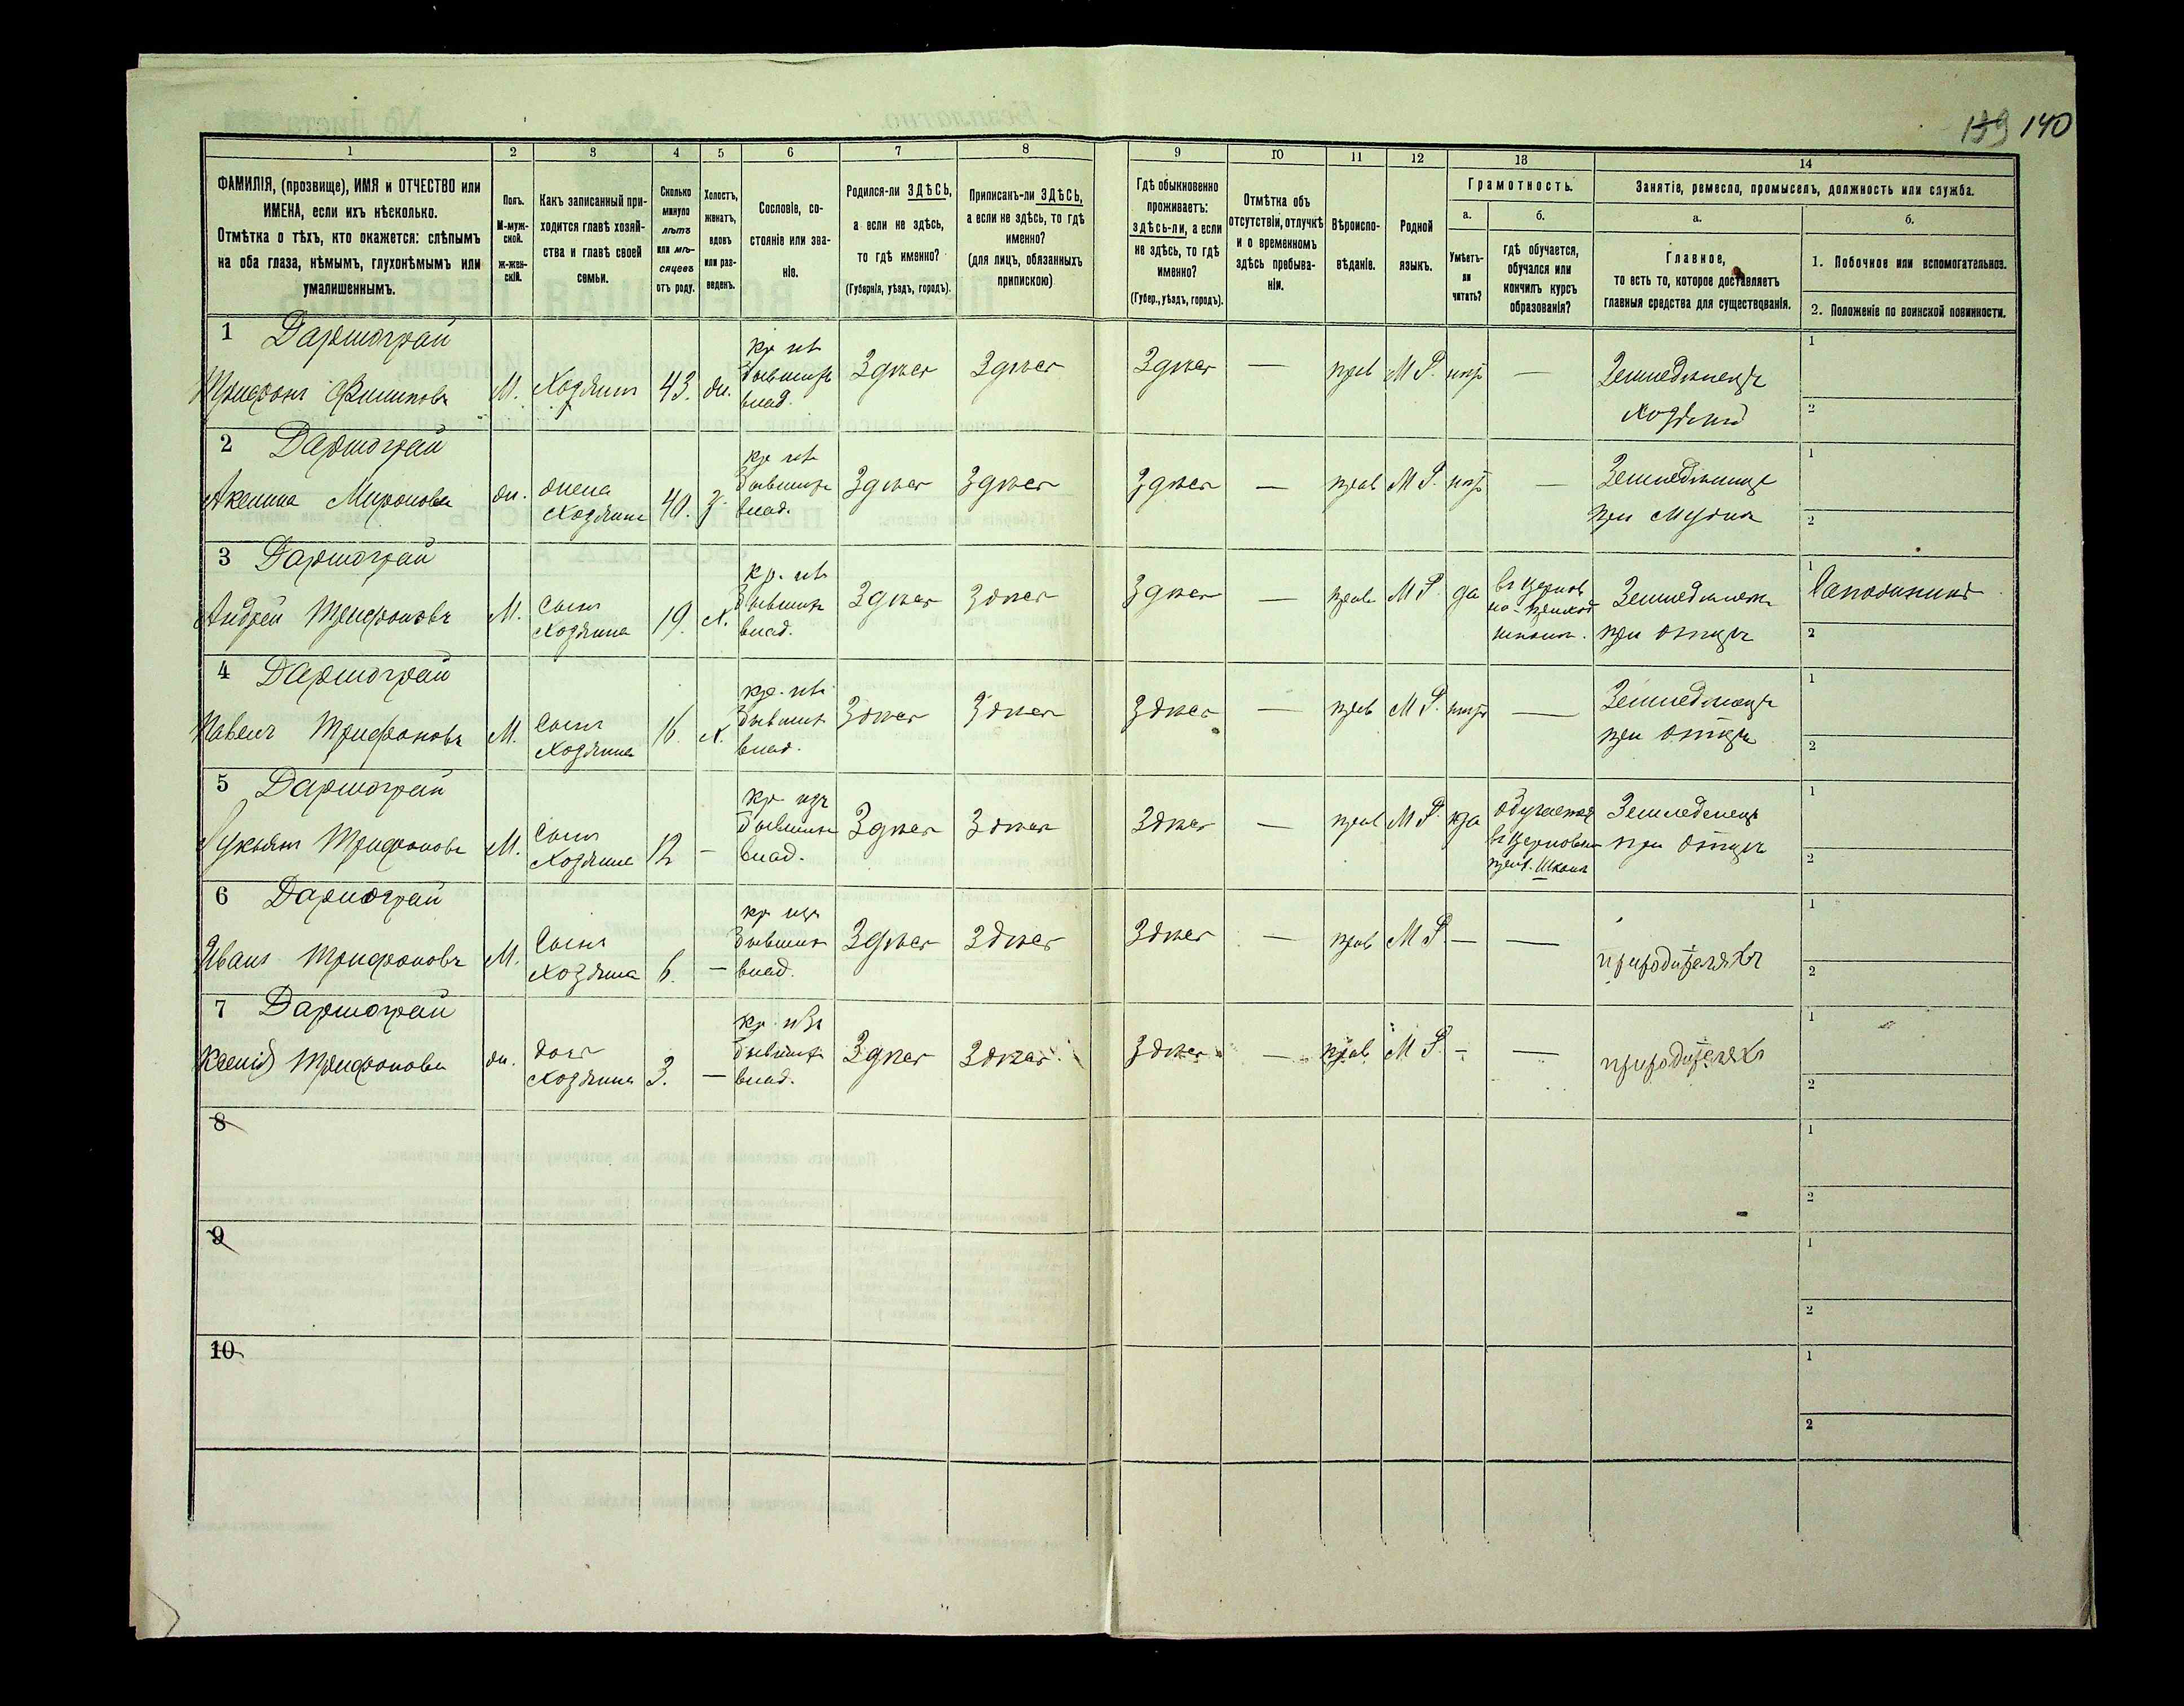 139 140
1 2 3 4 5 6 7 8 9 10 11 12 13 14
ФАМИЛІЯ, (прозвище), ИМЯ и ОТЧЕСТВО или
ИМЕНА, если ихъ нѣсколько.
Отмѣтка о тѣхъ, кто окажется: слѣпымъ
на оба глаза, нѣмымъ, глухонѣмымъ или
умалишеннымъ.
Полъ.
М-муж-
ской.
ж-жен-
скій.
Какъ записанный при-
ходится главѣ хозяй-
ства и главѣ своей
семьи.
Сколько
минуло
лѣтъ
или мѣ-
сяцевъ
отъ роду.
Холостъ,
женатъ,
вдовъ
или раз-
веденъ.
Сословіе, со-
стояніе или зва-
ніе.
Родился-ли ЗДѢСЬ,
а если не здѣсь,
то гдѣ именно?
(Губернія, уѣздъ, городъ).
Приписанъ-ли ЗДѢСЬ,
а если не здѣсь, то гдѣ
именно?
(для лицъ, обязанныхъ
припискою)
Гдѣ обыкновенно
проживаетъ:
здѣсь-ли, а если
не здѣсь, то гдѣ
именно?
(Губер., уѣздъ, городъ).
Отмѣтка объ
отсутствіи, отлучкѣ
и о временномъ
здѣсь пребыва-
ніи.
Вѣроиспо-
вѣданіе.
Родной
языкъ.
Грамотность.
а.
Умѣетъ-
ли
читать?
б.
гдѣ обучается,
обучался или
кончилъ курсъ
образованія?
Занятіе, ремесло, промыселъ, должность или служба.
а.
Главное,
то есть то, которое доставляетъ
главныя средства для существованія.
б.
1. Побочное или вспомогательное.
2. Положеніе по воинской повинности.
1 Даршограй
Трифонъ Филиповъ М. Хозяинъ 43. ж. кр. изъ бывшихъ влад. Здѣсь Здѣсь Здѣсь — прав М Р. нѣтъ — Земледѣлецъ
хозяинъ
1
2
2 Даршограй
Акелина Миронова ж. жена хозяина 40. з. кр. изъ бывшихъ влад. Здѣсь Здѣсь Здѣсь — прав М Р. нѣтъ —
при мужѣ
1
2
3 Даршограй
Андрей Трифоновъ М. Сынъ хозяина 19. х. кр. изъ бывшихъ влад. Здѣсь Здѣсь Здѣсь — прав М Р. да въ церков
но-приход
школѣ. Земледѣлецъ
при отцѣ
1 Сапожникъ
2
4 Даршограй
Павелъ Трифоновъ М. Сынъ хозяина 16. х. кр. изъ бывшихъ влад. Здѣсь Здѣсь Здѣсь — прав М Р. нѣтъ — Земледѣлецъ
при отцѣ
1
2
5 Даршограй
Лукьянъ Трифоновъ М. Сынъ хозяина 12 — кр изъ бывшихъ влад. Здѣсь Здѣсь Здѣсь — прав М Р. да обучается
въ церковно
прих. школѣ Земледѣлецъ
при отцѣ
1
2
6 Даршограй
Иванъ Трифоновъ М. Сынъ хозяина 6. — кр изъ бывшихъ влад. Здѣсь Здѣсь Здѣсь — прав М Р — — при родителяхъ
1
2
7 Даршограй
Ксенія Трифонова ж. дочь хозяина 3. — кр. изъ бывшихъ влад. Здѣсь Здѣсь Здѣсь — прав М Р. — — при родителяхъ
1
2
8
1
2
9
1
2
10
1
2